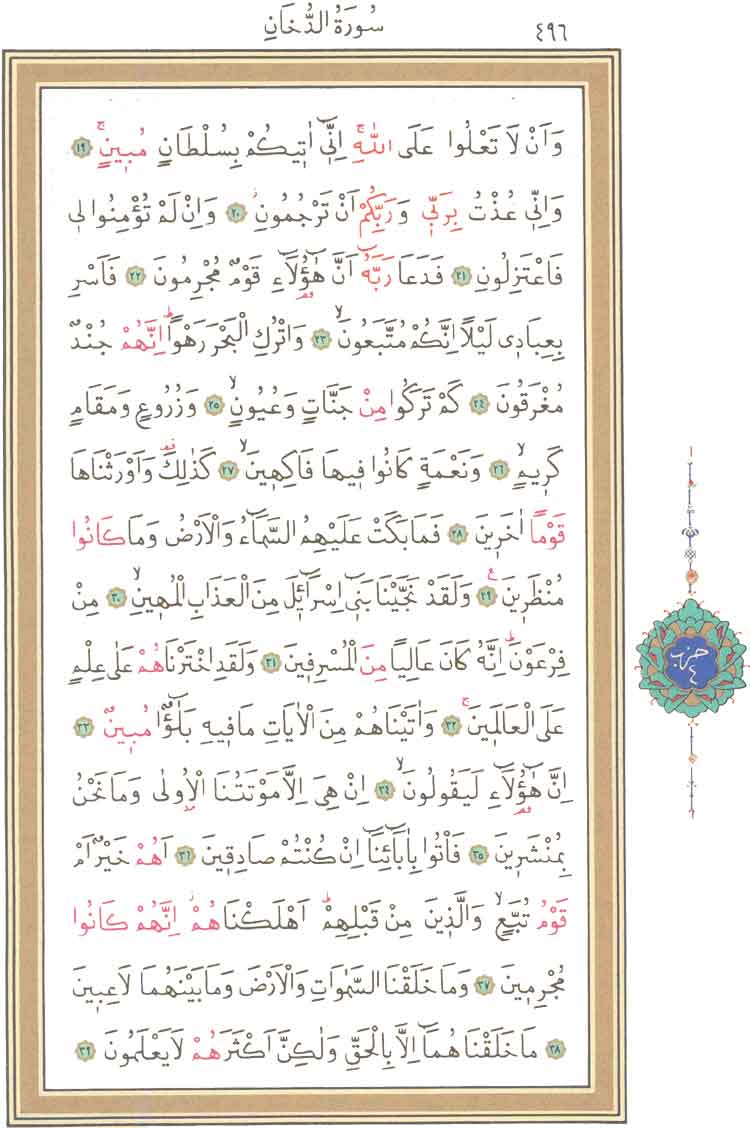 سُورَةُ الدُّخَانِ
٤٩٦
وَاَنْ لَا تَعْلُوا عَلَى اللّٰهِۚ اِنّ۪ٓي اٰت۪يكُمْ بِسُلْطَانٍ مُب۪ينٍۚ ﴿١٩﴾
وَاِنّ۪ي عُذْتُ بِرَبّ۪ي وَرَبِّكُمْ اَنْ تَرْجُمُونِۘ ﴿٢٠﴾ وَاِنْ لَمْ تُؤْمِنُوا ل۪ي
فَاعْتَزِلُونِ ﴿٢١﴾ فَدَعَا رَبَّهُٓ اَنَّ هٰٓؤُ۬لَٓاءِ قَوْمٌ مُجْرِمُونَ ﴿٢٢﴾ فَاَسْرِ
بِعِبَاد۪ي لَيْلًا اِنَّكُمْ مُتَّبَعُونَۙ ﴿٢٣﴾ وَاتْرُكِ الْبَحْرَ رَهْوًاۜ اِنَّهُمْ جُنْدٌ
مُغْرَقُونَ ﴿٢٤﴾ كَمْ تَرَكُوا مِنْ جَنَّاتٍ وَعُيُونٍۙ ﴿٢٥﴾ وَزُرُوعٍ وَمَقَامٍ
كَر۪يمٍۙ ﴿٢٦﴾ وَنَعْمَةٍ كَانُوا ف۪يهَا فَاكِه۪ينَۙ ﴿٢٧﴾ كَذٰلِكَ۠ وَاَوْرَثْنَاهَا
قَوْمًا اٰخَر۪ينَ ﴿٢٨﴾ فَمَا بَكَتْ عَلَيْهِمُ السَّمَٓاءُ وَالْاَرْضُ وَمَا كَانُوا
مُنْظَر۪ينَ۟ ﴿٢٩﴾ وَلَقَدْ نَجَّيْنَا بَن۪ٓي اِسْرَٓائ۪لَ مِنَ الْعَذَابِ الْمُه۪ينِۙ ﴿٣٠﴾ مِنْ
فِرْعَوْنَۜ اِنَّهُ كَانَ عَالِيًا مِنَ الْمُسْرِف۪ينَ ﴿٣١﴾ وَلَقَدِ اخْتَرْنَاهُمْ عَلٰى عِلْمٍ
عَلَى الْعَالَم۪ينَۚ ﴿٣٢﴾ وَاٰتَيْنَاهُمْ مِنَ الْاٰيَاتِ مَا ف۪يهِ بَلٰٓؤٌ۬ا مُب۪ينٌ ﴿٣٣﴾
اِنَّ هٰٓؤُ۬لَٓاءِ لَيَقُولُونَۙ ﴿٣٤﴾ اِنْ هِيَ اِلَّا مَوْتَتُنَا الْاُو۫لٰى وَمَا نَحْنُ
بِمُنْشَر۪ينَ ﴿٣٥﴾ فَأْتُوا بِاٰبَٓائِنَٓا اِنْ كُنْتُمْ صَادِق۪ينَ ﴿٣٦﴾ اَهُمْ خَيْرٌ اَمْ
قَوْمُ تُبَّعٍۙ وَالَّذ۪ينَ مِنْ قَبْلِهِمْۜ اَهْلَكْنَاهُمْۘ اِنَّهُمْ كَانُوا
مُجْرِم۪ينَ ﴿٣٧﴾ وَمَا خَلَقْنَا السَّمٰوَاتِ وَالْاَرْضَ وَمَا بَيْنَهُمَا لَاعِب۪ينَ
﴿٣٨﴾ مَا خَلَقْنَاهُمَٓا اِلَّا بِالْحَقِّ وَلٰكِنَّ اَكْثَرَهُمْ لَا يَعْلَمُونَ ﴿٣٩﴾
حزب
٤